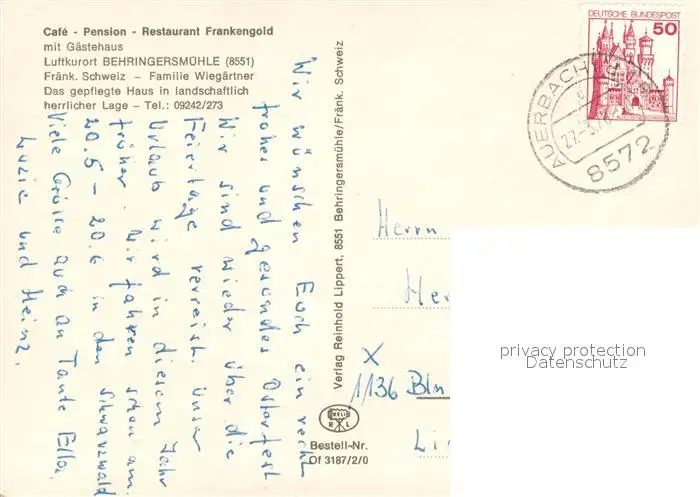 Café - Pension - Restaurant Frankengold
mit Gästehaus
Luftkurort BEHRINGERSMÜHLE (8551)
Fränk. Schweiz – Familie Wiegärtner
Das gepflegte Haus in landschaftlich
herrlicher Lage – Tel.: 09242/273
Wir wünschen Euch ein recht
frohes und gesundes Osterfest.
Wir sind wieder über die
Feiertage verreist. Unser
Urlaub wird in diesem Jahr
früher. Wir fahren schon am
20.5 – 20.6 in den Schwarzwald
Viele Grüße auch an Tante Ella.
Luzie und Heinz.
Verlag Reinhold Lippert, 8551 Behringersmühle/Fränk. Schweiz
BELI
R L
Bestell-Nr.
Of 3187/2/0
DEUTSCHE BUNDESPOST
50
AUERBACH
8572
Herrn
Her
X
1136 Bln
Li
privacy protection
Datenschutz